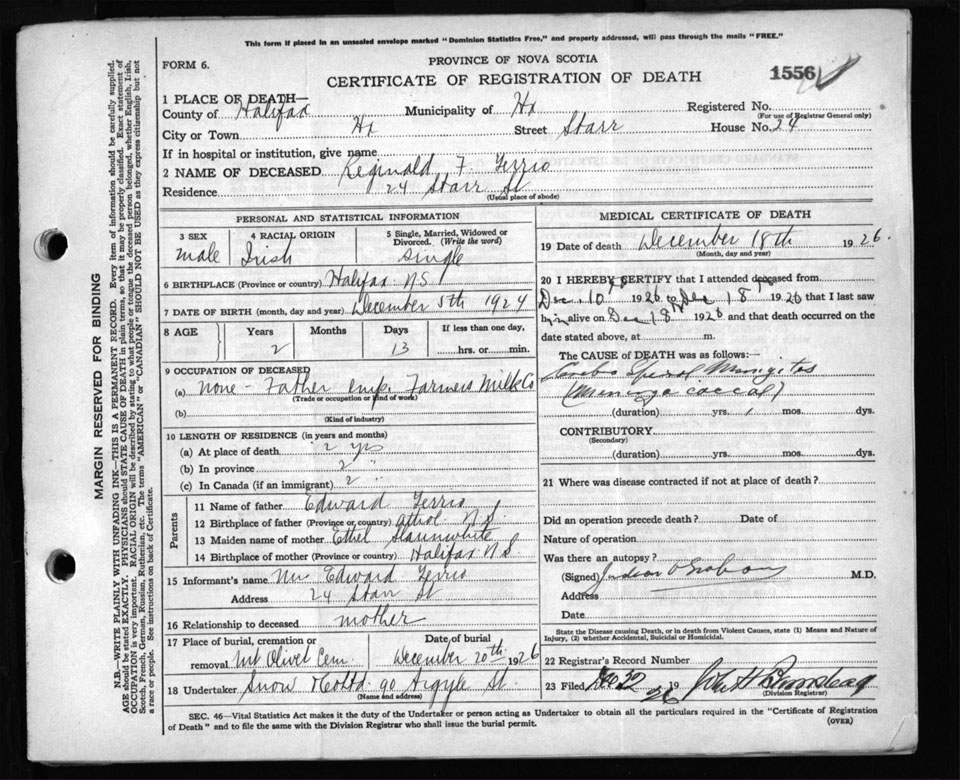 This form if placed in an unsealed envelope marked "Dominion Statistics Free," and properly addressed, will pass through the mails "FREE."
FORM 6.
PROVINCE OF NOVA SCOTIA
CERTIFICATE OF REGISTRATION OF DEATH
1556
1 PLACE OF DEATH—
County of Halifax Municipality of Hx Registered No.
(For use of Registrar General only)
City or Town Hx Street Starr House No. 24
If in hospital or institution, give name
2 NAME OF DECEASED Reginald F. Ferrio
Residence 24 Starr St
(Usual place of abode)
PERSONAL AND STATISTICAL INFORMATION
3 SEX male
4 RACIAL ORIGIN Irish
5 Single, Married, Widowed or Divorced. (Write the word) single
6 BIRTHPLACE (Province or country) Halifax N.S.
7 DATE OF BIRTH (month, day and year) December 5th 1924
8 AGE Years Months Days If less than one day,
2 13 hrs. or min.
9 OCCUPATION OF DECEASED
(a) none - Father emp. Farmers Milk Co
(Trade or occupation or kind of work)
(b)
(Kind of industry)
10 LENGTH OF RESIDENCE (in years and months)
(a) At place of death 2 yrs
(b) In province 2 "
(c) In Canada (if an immigrant) 2 "
Parents
11 Name of father Edward Ferrio
12 Birthplace of father (Province or country) N.S.
13 Maiden name of mother Ethel Slaunwhite
14 Birthplace of mother (Province or country) Halifax N.S.
15 Informant's name Mrs Edward Ferrio
Address 24 Starr St
16 Relationship to deceased mother
17 Place of burial, cremation or removal Mt Olivet Cem. Date of burial December 20th 1926
18 Undertaker Snow & Co Ltd 90 Argyle St.
(Name and address)
MEDICAL CERTIFICATE OF DEATH
19 Date of death December 18th 1926
(Month, day and year)
20 I HEREBY CERTIFY that I attended deceased from
Dec 10 1926 to Dec 18 1926 that I last saw
him alive on Dec 18 1926 and that death occurred on the
date stated above, at m.
The CAUSE OF DEATH was as follows:
Cerebro Spinal Mingitos
(duration) yrs. 1 mos. dys.
CONTRIBUTORY
(Secondary)
(duration) yrs. mos. dys.
21 Where was disease contracted if not at place of death?
Did an operation precede death? Date of
Nature of operation
Was there an autopsy?
(Signed) M.D.
Address
Date
State the Disease causing Death, or in death from Violent Causes, state (1) Means and Nature of
Injury, (2) whether Accidental, Suicidal or Homicidal.
22 Registrar's Record Number
23 Filed Dec 22 19 26
(Division Registrar)
SEC. 46—Vital Statistics Act makes it the duty of the Undertaker or person acting as Undertaker to obtain all the particulars required in the "Certificate of Registration
of Death" and to file the same with the Division Registrar who shall issue the burial permit.
(OVER)
MARGIN RESERVED FOR BINDING
N.B.—WRITE PLAINLY WITH UNFADING INK—THIS IS A PERMANENT RECORD. Every item of information should be carefully supplied.
AGE should be stated EXACTLY. PHYSICIANS should STATE CAUSE OF DEATH in plain terms, so that it may be properly classified. Exact statement of
OCCUPATION is very important. RACIAL ORIGIN will be described by stating to what people or tongue the deceased person belonged, whether English, Irish,
Scotch, French, German, Russian, Ruthenian, etc. The terms "AMERICAN" or "CANADIAN" SHOULD NOT BE USED as they express citizenship but not
a race or people. See instructions on back of Certificate.